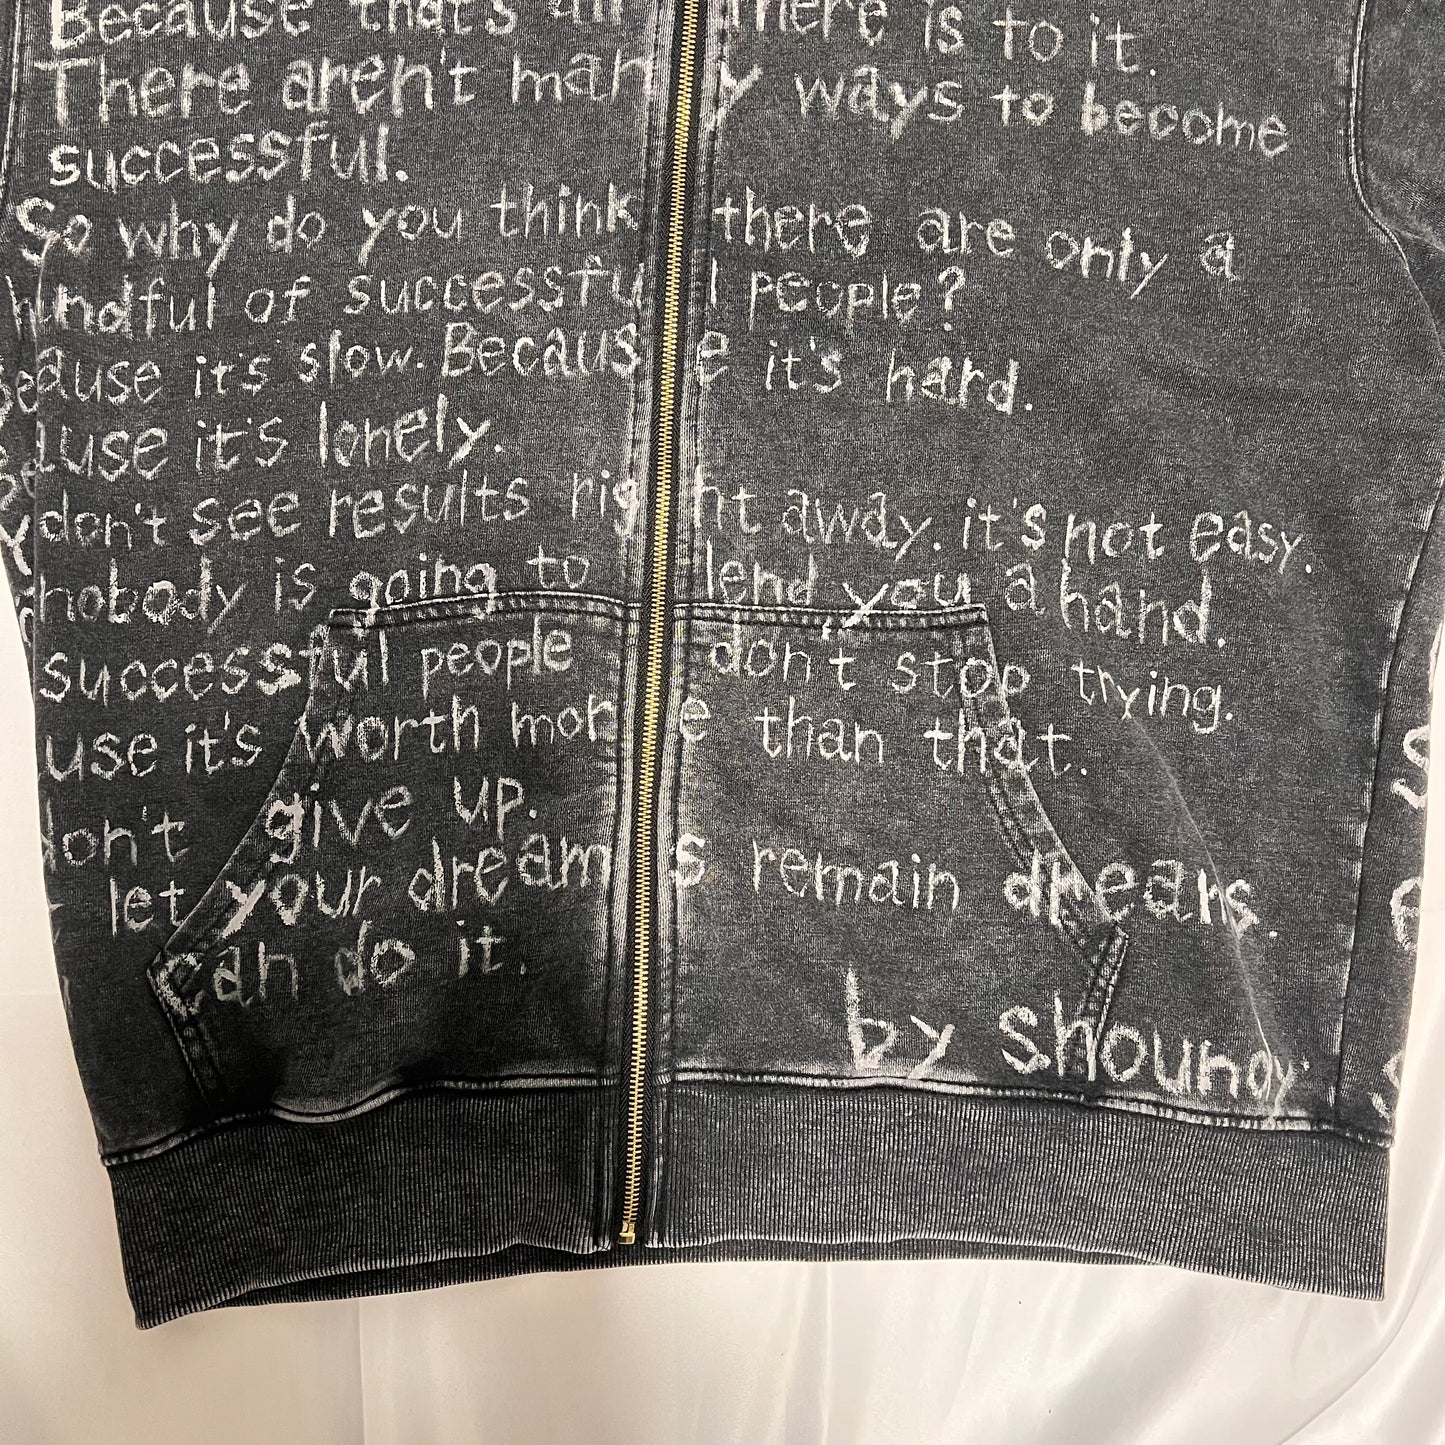 Because that's all there is to it.
There aren't many ways to become
successful.
So why do you think there are only a
hundful of successful people?
because it's slow. Because it's hard.
because it's lonely.
You don't see results right away. it's not easy.
nobody is going to lend you a hand.
successful people don't stop trying.
use it's worth more than that.
don't give up.
let your dreams remain dreams.
can do it.
by shoundy